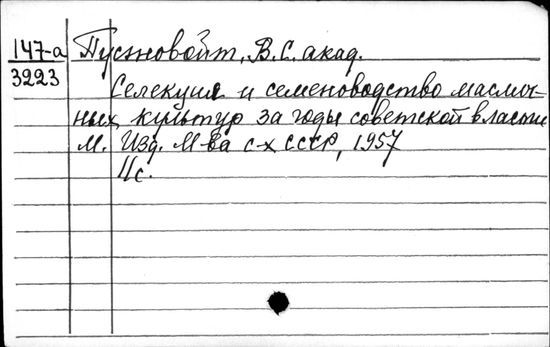 147-а Пустовойт, В.С. акад.
3223
Селекция и семеноводство маслич-
ных культур за годы советской власти
М. Изд. М-ва с-х СССР, 1957
11с.